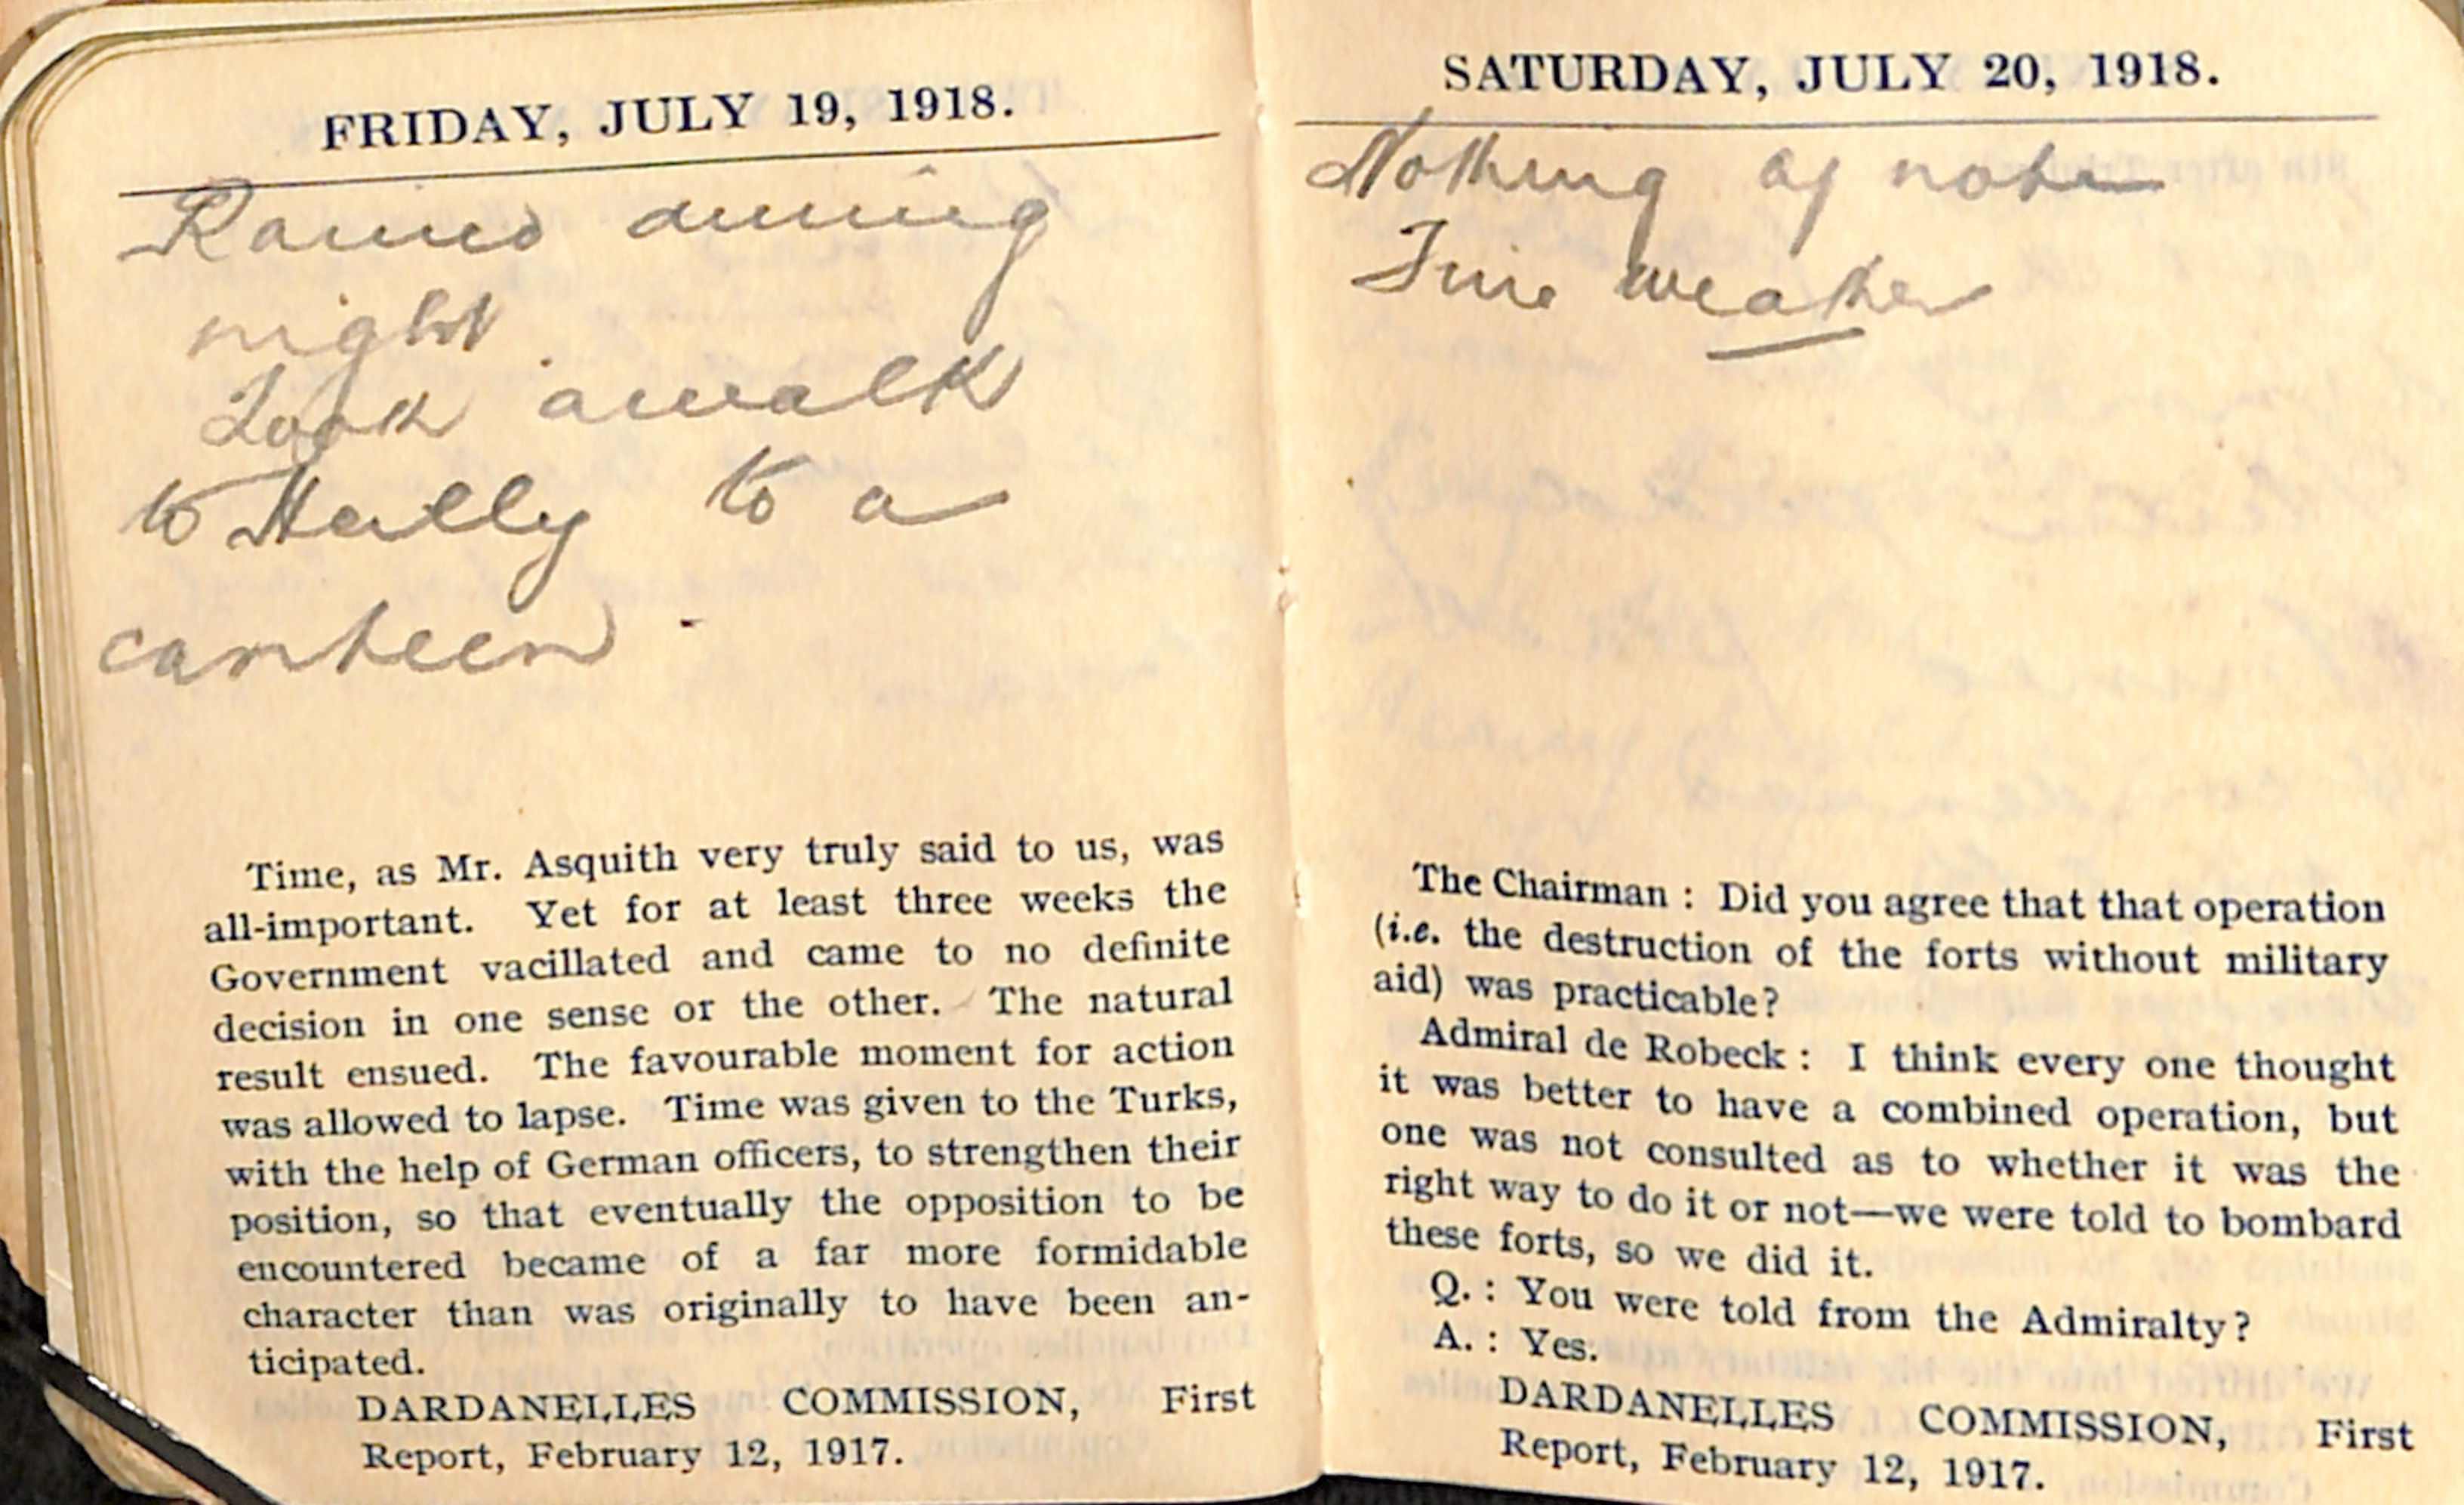 FRIDAY, JULY 19, 1918.
Rained during
night
Took a walk
to Heilly to a
canteen
Time, as Mr. Asquith very truly said to us, was
all-important. Yet for at least three weeks the
Government vacillated and came to no definite
decision in one sense or the other. The natural
result ensued. The favourable moment for action
was allowed to lapse. Time was given to the Turks,
with the help of German officers, to strengthen their
position, so that eventually the opposition to be
encountered became of a far more formidable
character than was originally to have been an-
ticipated.
DARDANELLES COMMISSION, First
Report, February 12, 1917.
SATURDAY, JULY 20, 1918.
Nothing of note
Fine weather
The Chairman : Did you agree that that operation
(i.e. the destruction of the forts without military
aid) was practicable?
Admiral de Robeck : I think every one thought
it was better to have a combined operation, but
one was not consulted as to whether it was the
right way to do it or not—we were told to bombard
these forts, so we did it.
Q. : You were told from the Admiralty?
A. : Yes.
DARDANELLES COMMISSION, First
Report, February 12, 1917.